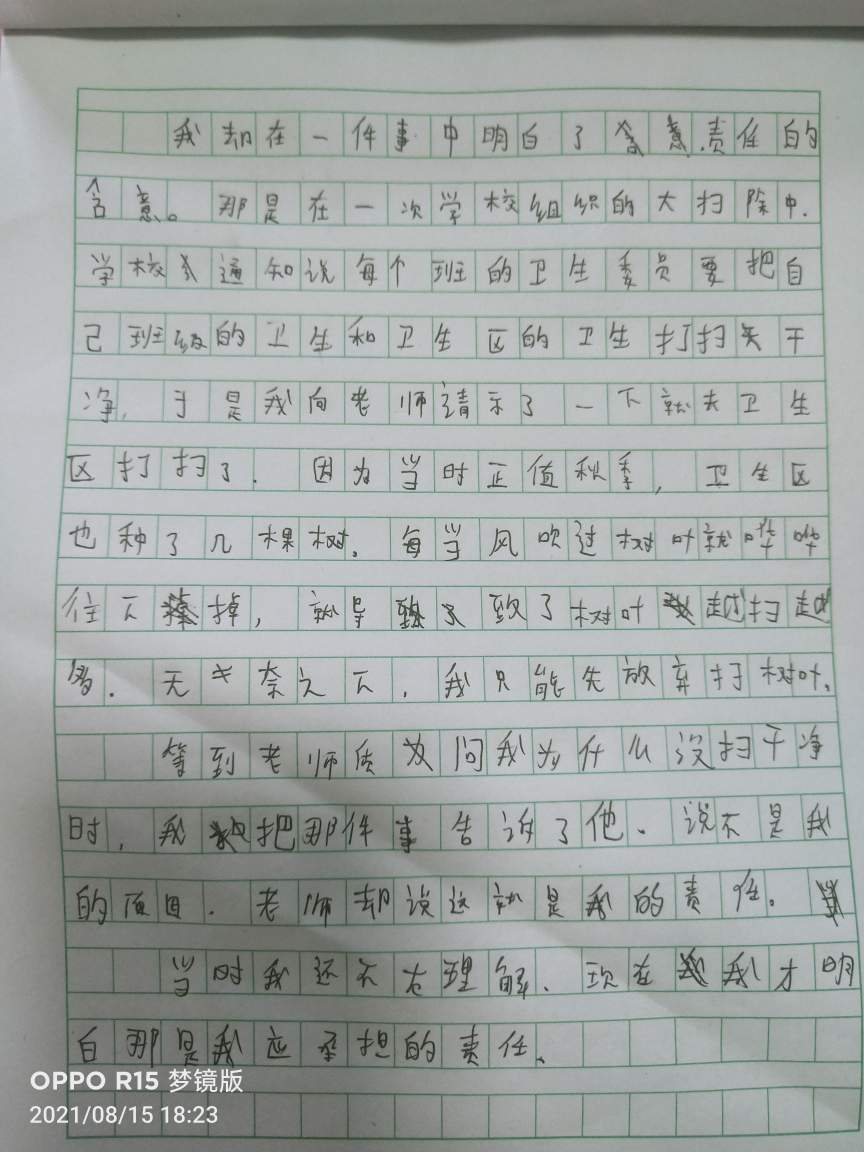 我却在一件事中明白了含意责任的
含意。那是在一次学校组织的大扫除中.
学校通知说每个班的卫生委员要把自
己班级的卫生和卫生区的卫生打扫干
净,于是我向老师请示了一下就去卫生
区打扫了.因为当时正值秋季,卫生区
也种了几棵树.每当风吹过树叶就哗哗
往下掉,就导致了树叶越扫越
多.无奈之下,我只能先放弃打扫树叶.
等到老师质问我为什么没扫干净
时,我把那件事告诉了他.说不是我
的原因.老师却说这就是我的责任。
当时我还不太理解.现在我才明
白那是我应承担的责任.
OPPO R15 梦镜版
2021/08/15 18:23